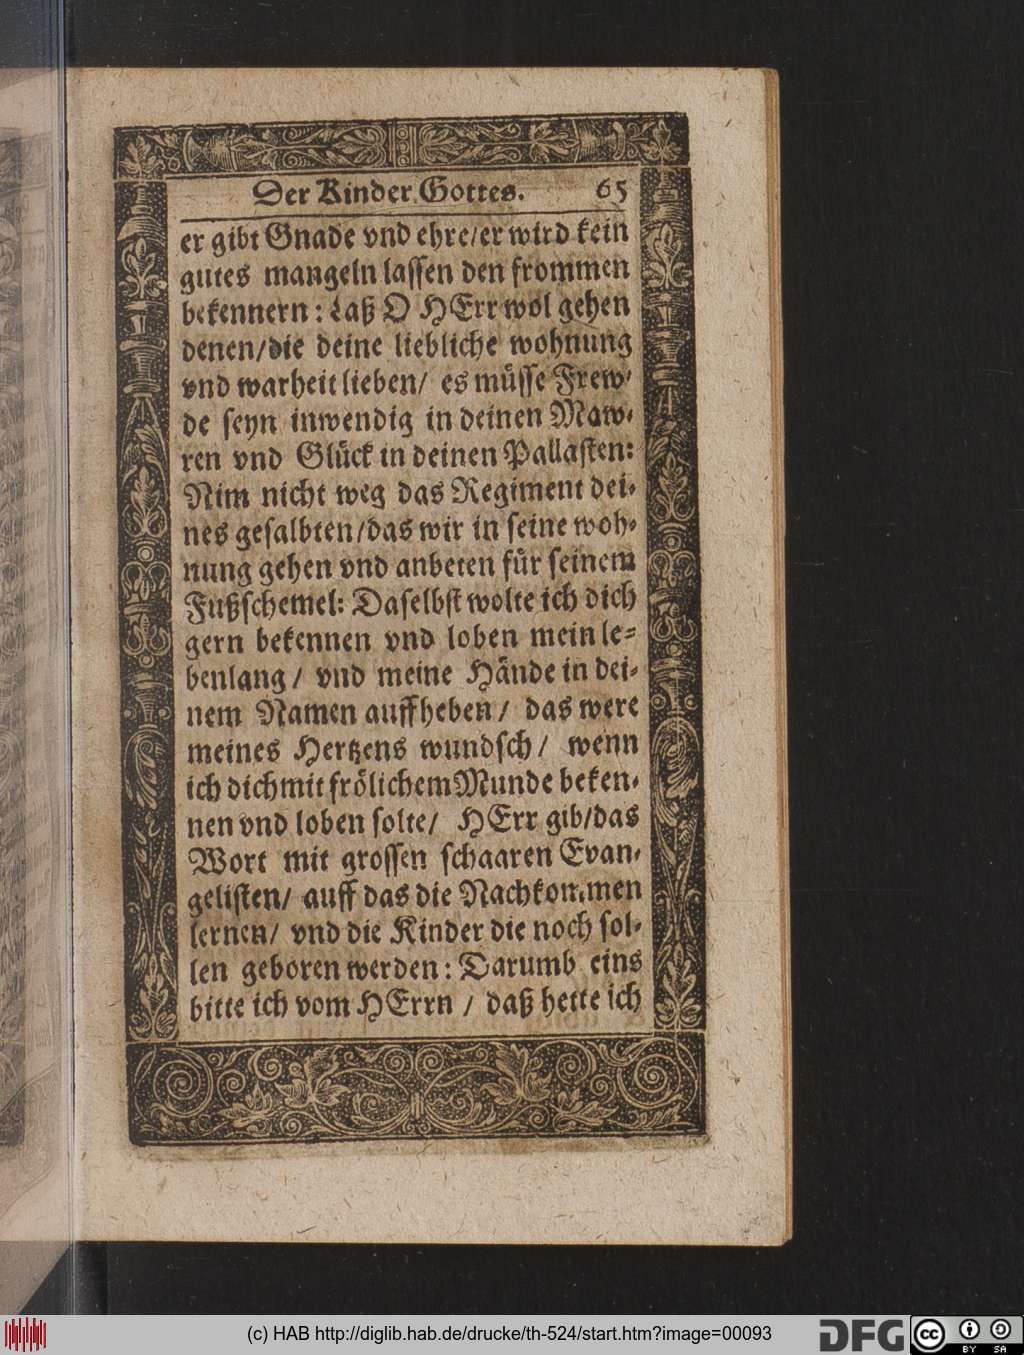 Der Kinder Gottes. 65
er gibt Gnade vnd ehre/er wird kein
gutes mangeln lassen den frommen
bekennern: Laß O HErr wol gehen
denen/die deine liebliche wohnung
vnd warheit lieben/ es müsse Frew-
de seyn inwendig in deinen Maw-
ren vnd Glück in deinen Pallasten:
Nim nicht weg das Regiment dei-
nes gesalbten/das wir in seine woh-
nung gehen vnd anbeten für seinem
Fußschemel: Daselbst wolte ich dich
gern bekennen vnd loben mein le-
benlang/ vnd meine Hände in dei-
nem Namen auffheben/ das were
meines Hertzens wundsch/ wenn
ich dich mit frölichem Munde beken-
nen vnd loben solte/ HErr gib/das
Wort mit grossen schaaren Evan-
gelisten/ auff das die Nachkommen
lernen/ vnd die Kinder die noch sol-
len geboren werden: Darumb eins
bitte ich vom HErrn / daß hette ich
(c) HAB http://diglib.hab.de/drucke/th-524/start.htm?image=00093
DFG
cc
BY SA